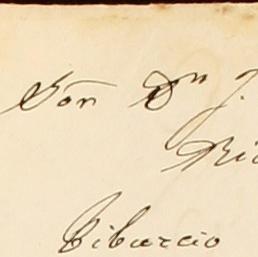 Sõr Dn J.
Ri
Tiburcio